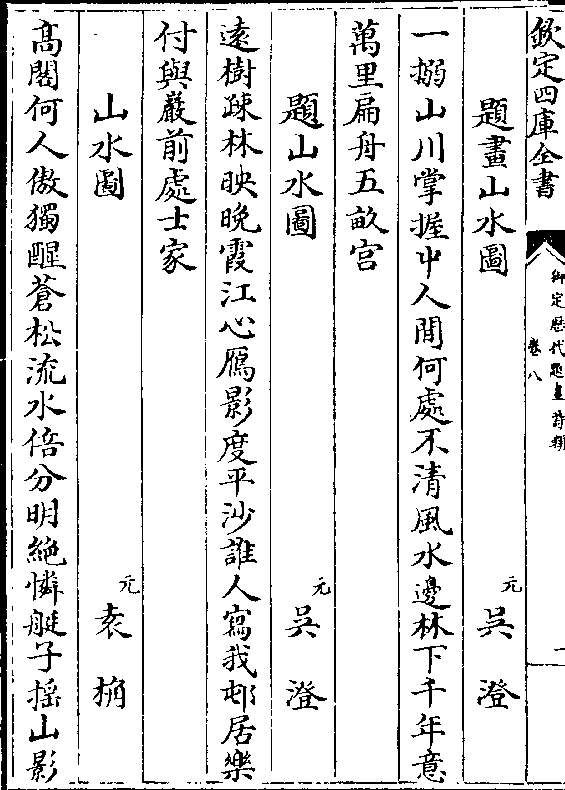 欽定四庫全書
御定歴代題畫詩類
卷八
一
題畫山水圖
元
吳澄
一搦山川掌握中人間何處不清風水邊林下千年意
萬里扁舟五畝宫
題山水圖
元
吳澄
遠樹疎林映晚霞江心鴈影度平沙誰人寫我邨居樂
付與巖前處士家
山水圖
元
袁桷
髙閣何人傲獨醒蒼松流水倍分明絶憐艇子揺山影